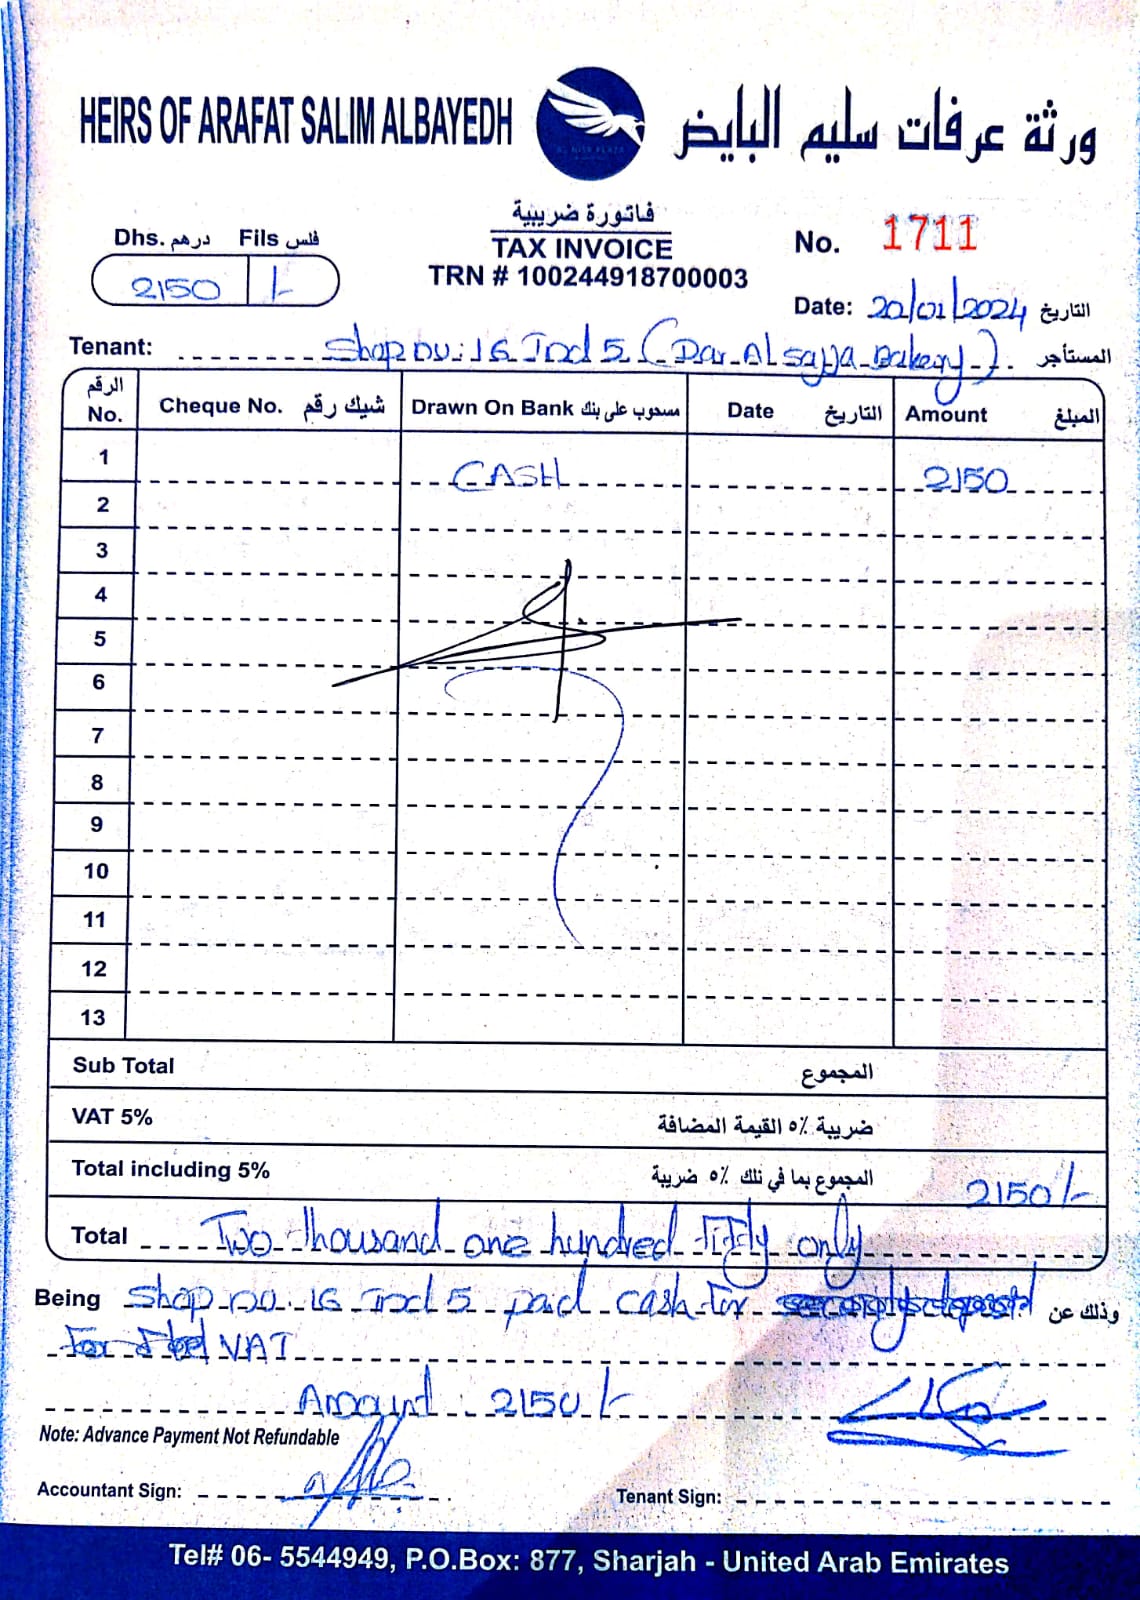 HEIRS OF ARAFAT SALIM ALBAYEDH
ورثة عرفات سليم البايض
فاتورة ضريبية
TAX INVOICE
TRN # 100244918700003
Dhs. درهم Fils فلس
2150 /-
No. 1711
Date: 20/01/2024 التاريخ
Tenant: Shop no: 16 Ind 5 (Dar Al sajja Bakery) المستأجر
الرقم No. Cheque No. شيك رقم Drawn On Bank مسحوب على بنك Date التاريخ Amount المبلغ
1 CASH 2150
2
3
4
5
6
7
8
9
10
11
12
13
Sub Total المجموع
VAT 5% ضريبة ٥٪ القيمة المضافة
Total including 5% المجموع بما في ذلك ٥٪ ضريبة 2150/-
Total Two thousand one hundred fifty only
Being Shop no: 16 Ind 5 paid cash for وذلك عن
VAT
Amount: 2150/-
Note: Advance Payment Not Refundable
Accountant Sign:
Tenant Sign:
Tel# 06- 5544949, P.O.Box: 877, Sharjah - United Arab Emirates